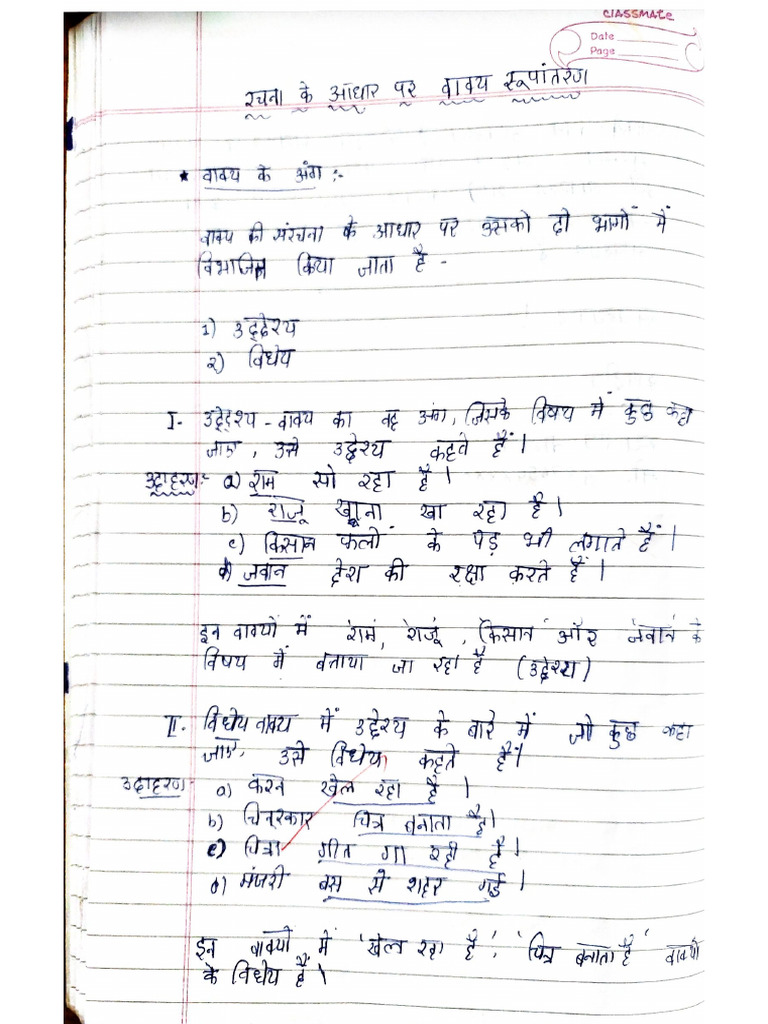 classmate
Date
Page
रचना के आधार पर वाक्य रूपांतरण
* वाक्य के अंग :-
वाक्य की संरचना के आधार पर उसको दो भागों में
विभाजित किया जाता है -
1) उद्देश्य
२) विधेय
I- उद्देश्य - वाक्य का वह अंग, जिसके विषय में कुछ कहा
जाए, उसे उद्देश्य कहते हैं।
उदाहरण:- a) राम सो रहा है।
b) राजू खाना खा रहा है।
c) किसान फलों के पेड़ भी लगाते हैं।
d) जवान देश की रक्षा करते हैं।
इन वाक्यों में 'राम', 'राजू', 'किसान' और 'जवान' के
विषय में बताया जा रहा है (उद्देश्य)
II. विधेय वाक्य में उद्देश्य के बारे में जो कुछ कहा
जाए, उसे विधेय कहते हैं।
उदाहरण:- a) करन खेल रहा है।
b) चित्रकार चित्र बनाता है।
c) चित्रा गीत गा रही है।
d) मंजरी बस से शहर गई।
इन वाक्यों में 'खेल रहा है', 'चित्र बनाता है' वाक्यों
के विधेय हैं।